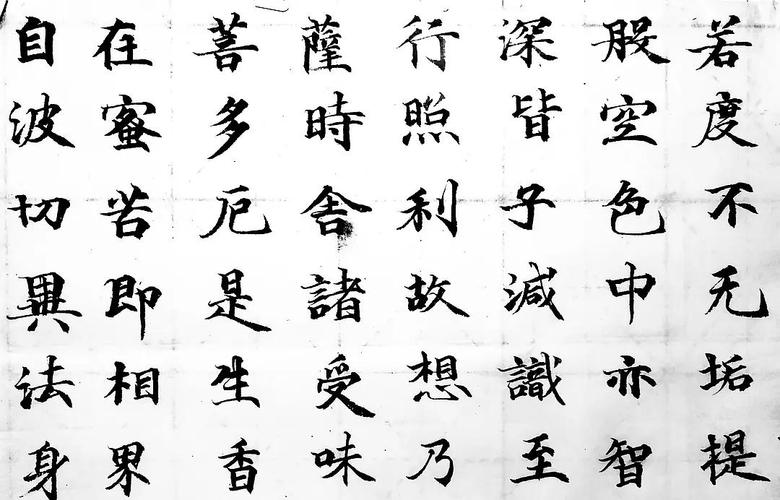 自在菩薩行深般若
波蜜多時照皆空度
切苦厄舍利子色不
異即是諸故減中无
法相生受想識亦垢
身界香味乃至智提